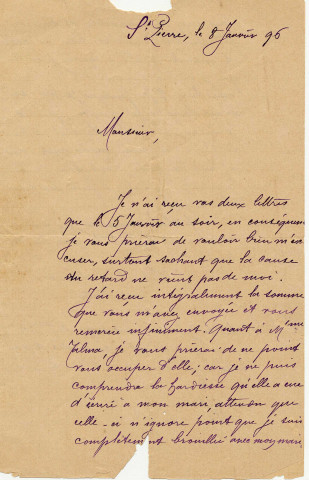 St Pierre, le 8 Janvier 96
Monsieur,
Je n'ai reçu vos deux lettres
que le 5 Janvier au soir, en conséquence
je vous prierai de vouloir bien m'ex
cuser, surtout sachant que la cause
du retard ne vient pas de moi.
J'ai reçu intégralement la somme
que vous m'avez envoyée et vous
remercie infiniment. Quant à Mme
Talma, je vous prierai de ne point
vous occuper d'elle; car je ne puis
comprendre la hardiesse qu'elle a eue
d'écrire à mon mari, attendu que
celle-ci n'ignore point que je suis
complètement brouillée avec mon mari